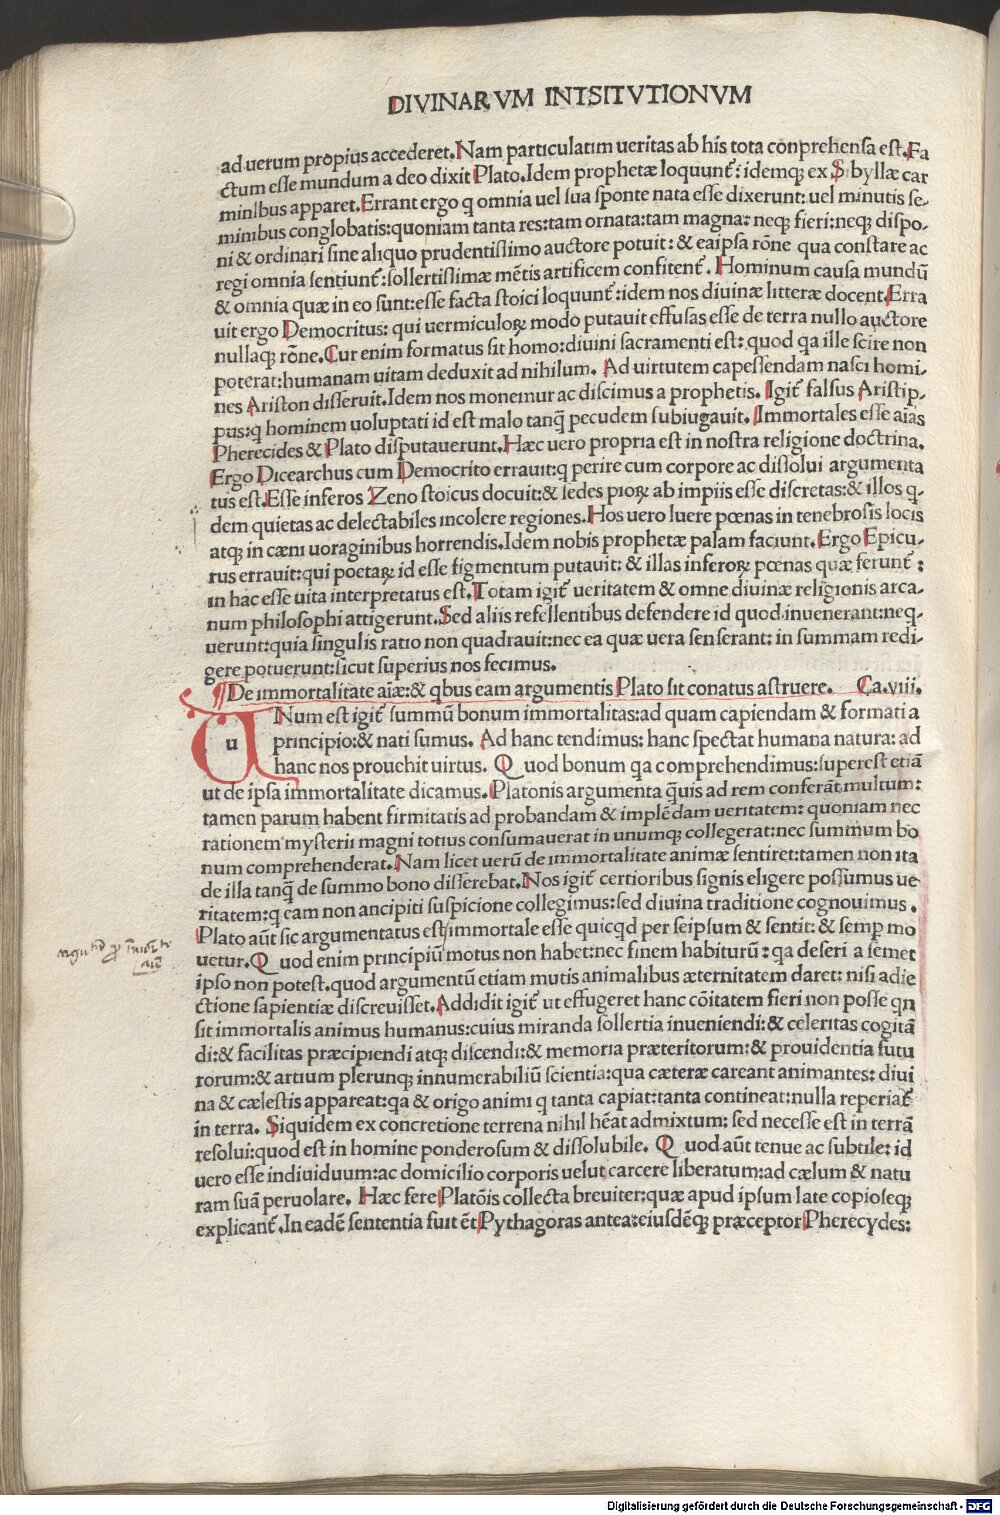 DIVINARVM INTSITVTIONVM
ad uerum propius accederet. Nam particulatim ueritas ab his tota conprehensa est. Fa
ctum esse mundum a deo dixit Plato. Idem prophetæ loquunt᷑: idemqꝫ ex Sibyllæ car
minibus apparet. Errant ergo ꝙ omnia uel sua sponte nata esse dixerunt: uel minutis se-
minibus conglobatis: quoniam tanta res: tam ornata: tam magna: neqꝫ fieri: neqꝫ dispo-
ni & ordinari sine aliquo prudentissimo auctore potuit: & ea ipsa rōne qua constare ac
regi omnia sentiunt᷑: sollertissimæ mētis artificem confitent᷑. Hominum causa mundū
& omnia quæ in eo sunt: esse facta stoici loquunt᷑: idem nos diuinæ litteræ docent. Erra
uit ergo Democritus: qui uermiculoꝝ modo putauit effusas esse de terra nullo auctore
nullaqꝫ rōne. Cur enim formatus sit homo: diuini sacramenti est: quod qa ille scire non
poterat: humanam uitam deduxit ad nihilum. Ad virtutem capessendam nasci homi-
nes Ariston disseruit. Idem nos monemur ac discimus a prophetis. Igit᷑ falsus Aristip-
pus: ꝙ hominem uoluptati id est malo tanq̄ pecudem subiugauit. Immortales esse aīas
Pherecides & Plato disputauerunt. Hæc uero propria est in nostra religione doctrina.
Ergo Dicearchus cum Democrito errauit: ꝙ perire cum corpore ac dissolui argumenta
tus est. Esse inferos Zeno stoicus docuit: & sedes pioꝝ ab impiis esse discretas: & illos q-
dem quietas ac delectabiles incolere regiones. Hos uero luere pœnas in tenebrosis locis
atqꝫ in cæni uoraginibus horrendis. Idem nobis prophetæ palam faciunt. Ergo Epicu-
rus errauit: qui poetaꝝ id esse figmentum putauit: & illas inferoꝝ pœnas quæ ferunt᷑:
in hac esse uita interpretatus est. Totam igit᷑ ueritatem & omne diuinæ religionis arca-
num philosophi attigerunt. Sed aliis refellentibus defendere id quod inuenerant: neq-
uerunt: quia singulis ratio non quadrauit: nec ea quæ uera senserant: in summam redi-
gere potuerunt: sicut superius nos fecimus.
¶ De immortalitate aīæ: & qbus eam argumentis Plato sit conatus astruere. Ca. viii.
u Num est igit᷑ summū bonum immortalitas: ad quam capiendam & formati a
principio: & nati sumus. Ad hanc tendimus: hanc spectat humana natura: ad
hanc nos prouehit uirtus. Quod bonum qa comprehendimus: superest etiā
ut de ipsa immortalitate dicamus. Platonis argumenta q̄uis ad rem conferāt multum:
tamen parum habent firmitatis ad probandam & implēdam ueritatem: quoniam nec
rationem mysterii magni totius consumauerat in unumqꝫ collegerat: nec summum bo
num comprehenderat. Nam licet uerū de immortalitate animæ sentiret: tamen non ita
de illa tanq̄ de summo bono disserebat. Nos igit᷑ certioribus signis eligere possumus ue
ritatem: ꝙ eam non ancipiti suspicione collegimus: sed diuina traditione cognouimus.
Plato aūt sic argumentatus est immortale esse quicqd per seipsum & sentit: & semꝑ mo
uetur. Quod enim principiū motus non habet: nec finem habiturū: qa deseri a semet
ipso non potest. quod argumentū etiam mutis animalibus æternitatem daret: nisi adie
ctione sapientiæ discreuisset. Addidit igit᷑ ut effugeret hanc cōitatem fieri non posse qn
sit immortalis animus humanus: cuius miranda sollertia inueniendi: & celeritas cogitā
di: & facilitas præcipiendi atqꝫ discendi: & memoria præteritorum: & prouidentia futu
rorum: & artium plerunqꝫ innumerabiliū scientia: qua cæteræ careant animantes: diui
na & cælestis appareat: qa & origo animi ꝙ tanta capiat: tanta contineat: nulla reperiat᷑
in terra. Siquidem ex concretione terrena nihil hēat admixtum: sed necesse est in terrā
resolui: quod est in homine ponderosum & dissolubile. Quod aūt tenue ac subtile: id
uero esse indiuiduum: ac domicilio corporis uelut carcere liberatum: ad cælum & natu
ram suā peruolare. Hæc fere Platōis collecta breuiter: quæ apud ipsum late copioseqꝫ
explicant᷑. In eadē sententia fuit ēt Pythagoras antea: eiusdēqꝫ præceptor Pherecydes:
Digitalisierung gefördert durch die Deutsche Forschungsgemeinschaft - DFG